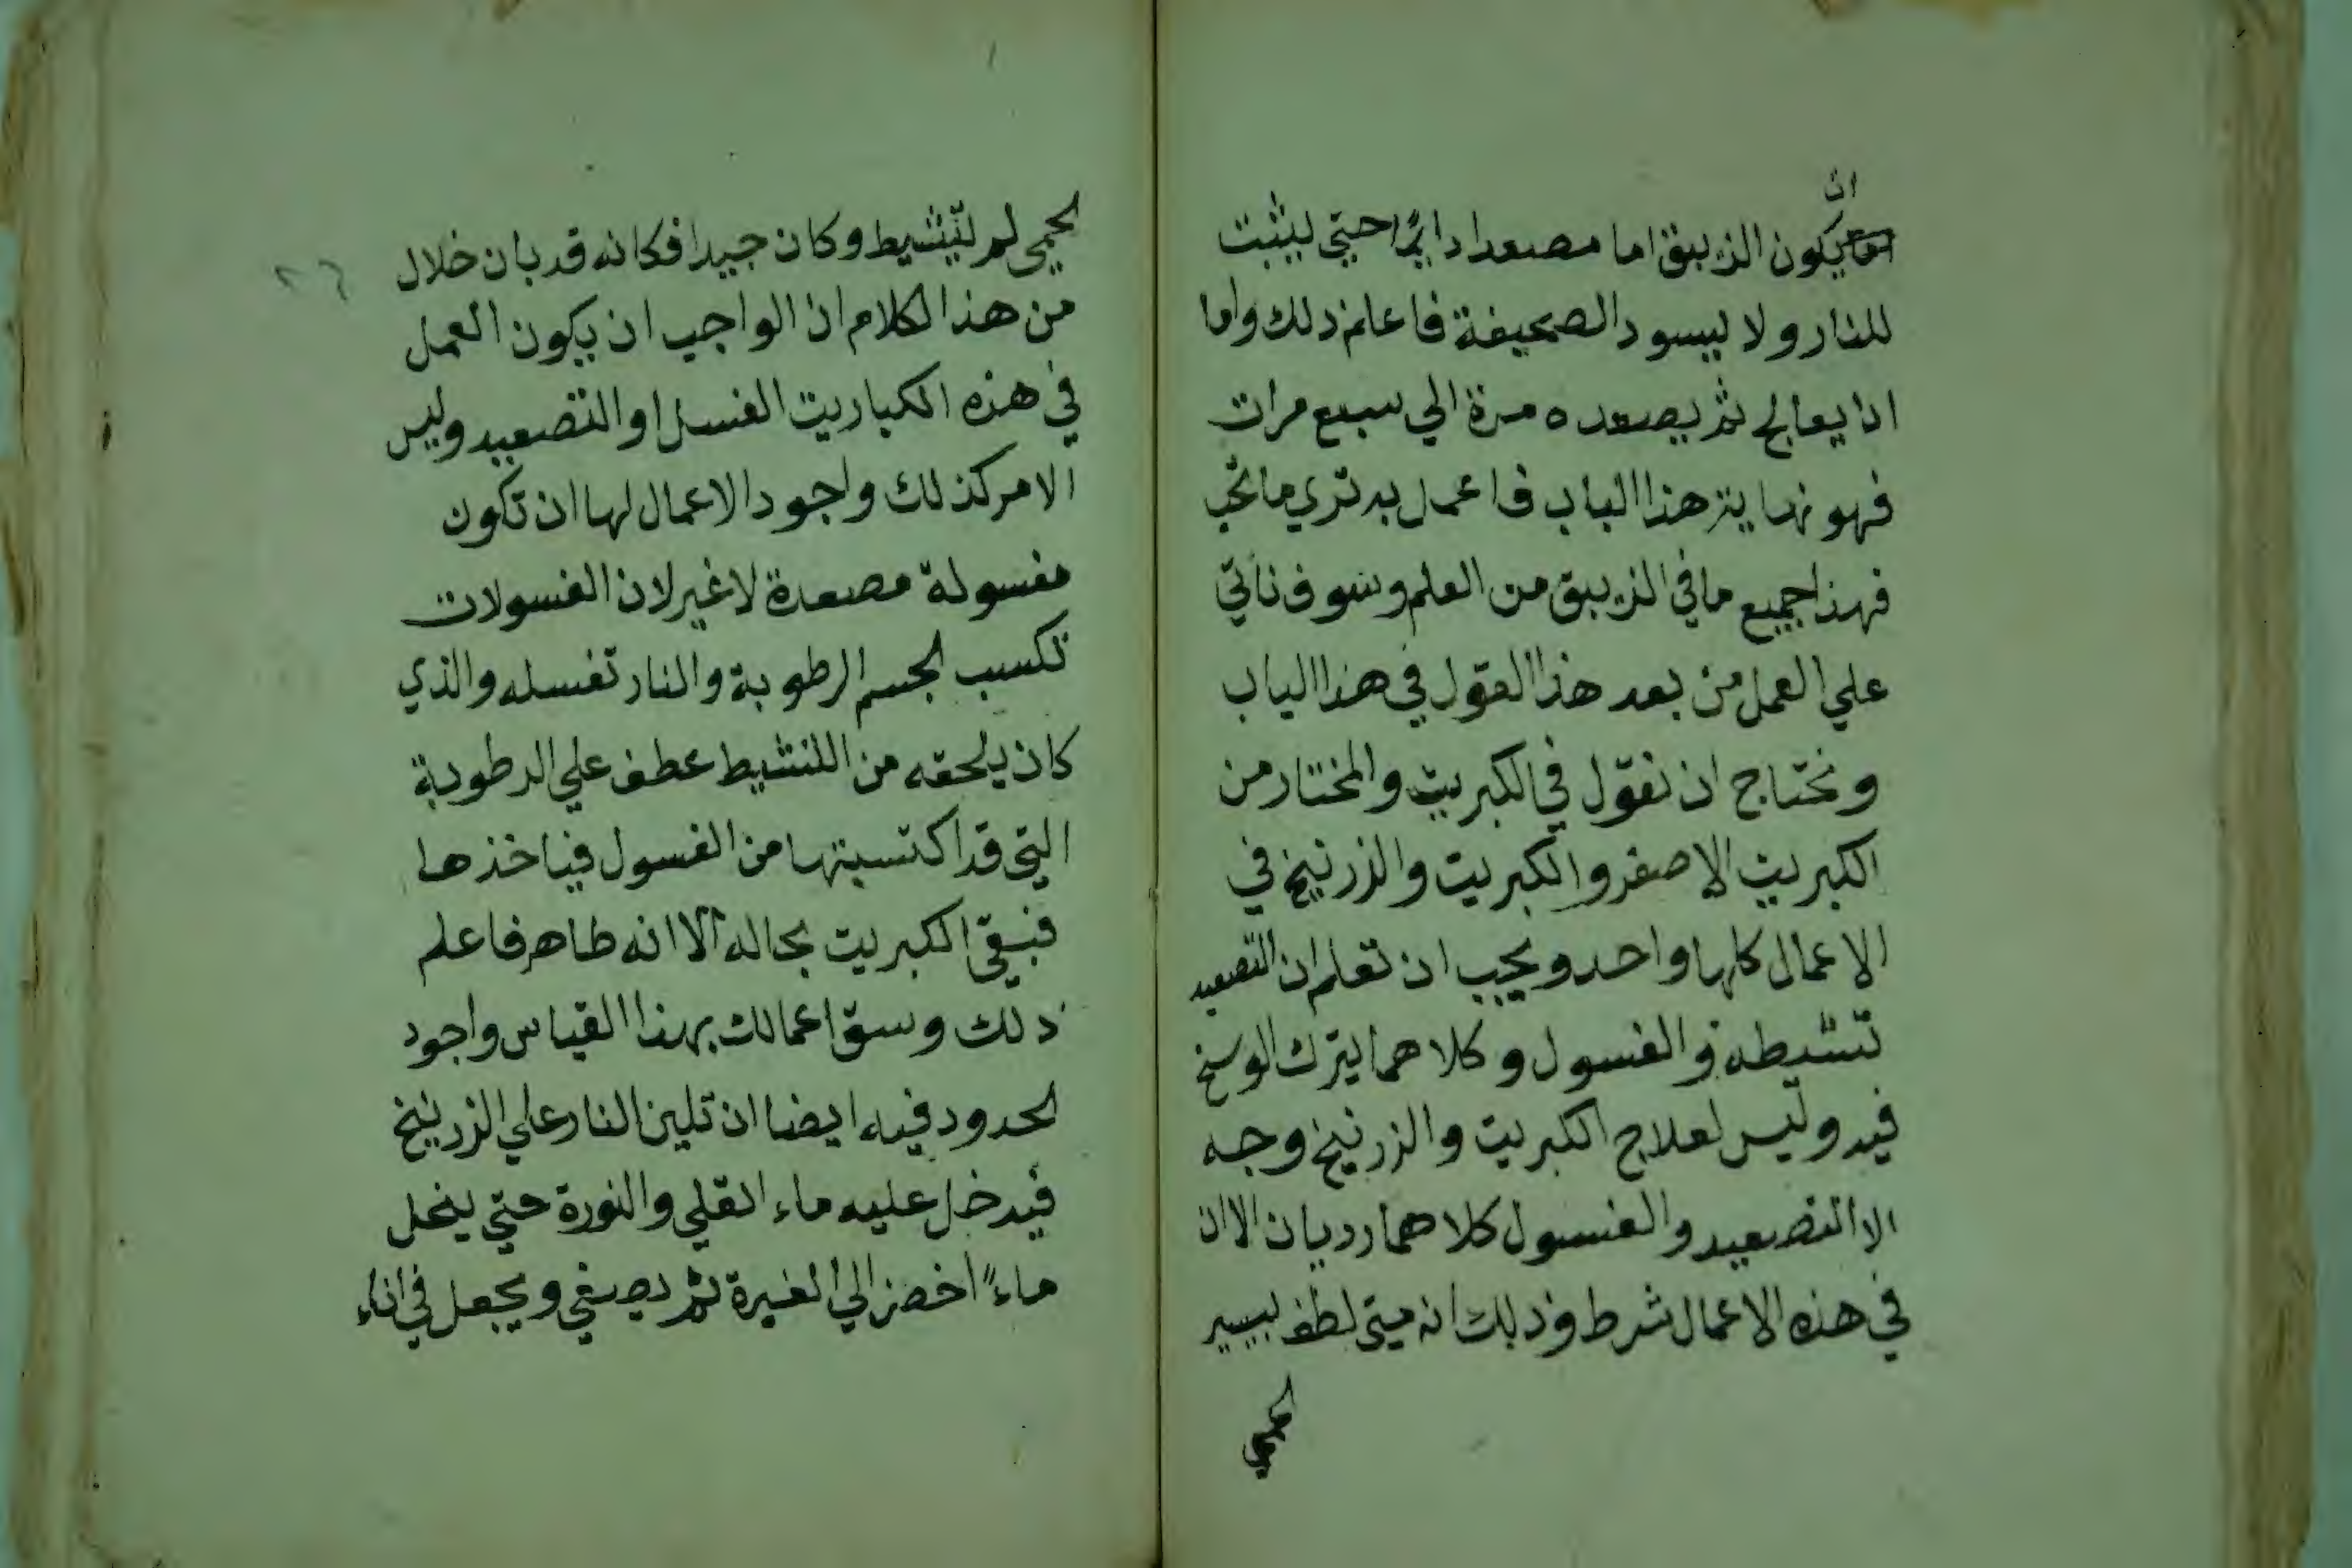 ان
يكون الزيبق اما مصعدا دايما حتي ليثبت
للنار ولا ليسود الصحيفة فاعلم ذلك واما
اذا يعالج ثم يصعده مرة الي سبع مرات
فهو نهاية هذا الباب فاعمل به تري ما تحب
فهذا جميع ما في الزيبق من العلم وسوف ناتي
علي العمل من بعد هذا القول في هذا الباب
ونحتاج ان نقول في الكبريت والمختار من
الكبريت الاصفر والكبريت والزرنيخ في
الاعمال كلها واحد ويجب ان تعلم ان التصعيد
تنشيطه والغسول وكلاهما يترك الوسخ
فيه وليس لعلاج الكبريت والزرنيخ وجه
الا التصعيد والغسول كلاهما رديان الا ان
في هذه الاعمال شرط وذلك انه متي لطف ليسير
لحمي
لحمي لم لينشيط وكان جيدا فكانه قد بان خلال
من هذا الكلام ان الواجب ان يكون العمل
في هذه الكباريت الغسل او التصعيد وليس
الامر كذلك واجود الاعمال لها ان تكون
مغسولة مصعدة لا غير لان الغسولات
تكسب الجسم الرطوبة والنار تغسله والذي
كان يلحقه من اللنشيط عطف علي الرطوبة
التي قد اكتسبتها من الغسول فياخذها
فبقي الكبريت بحاله الا انه طاهر فاعلم
ذلك وسق اعمالك بهذا القياس واجود
الحدود فيه ايضا ان تلين النار علي الزرنيخ
فيدخل عليه ماء القلي والنورة حتي ينحل
ماءً اخضر الي الغبرة ثم يصفي ويجعل في اناء
٢٦